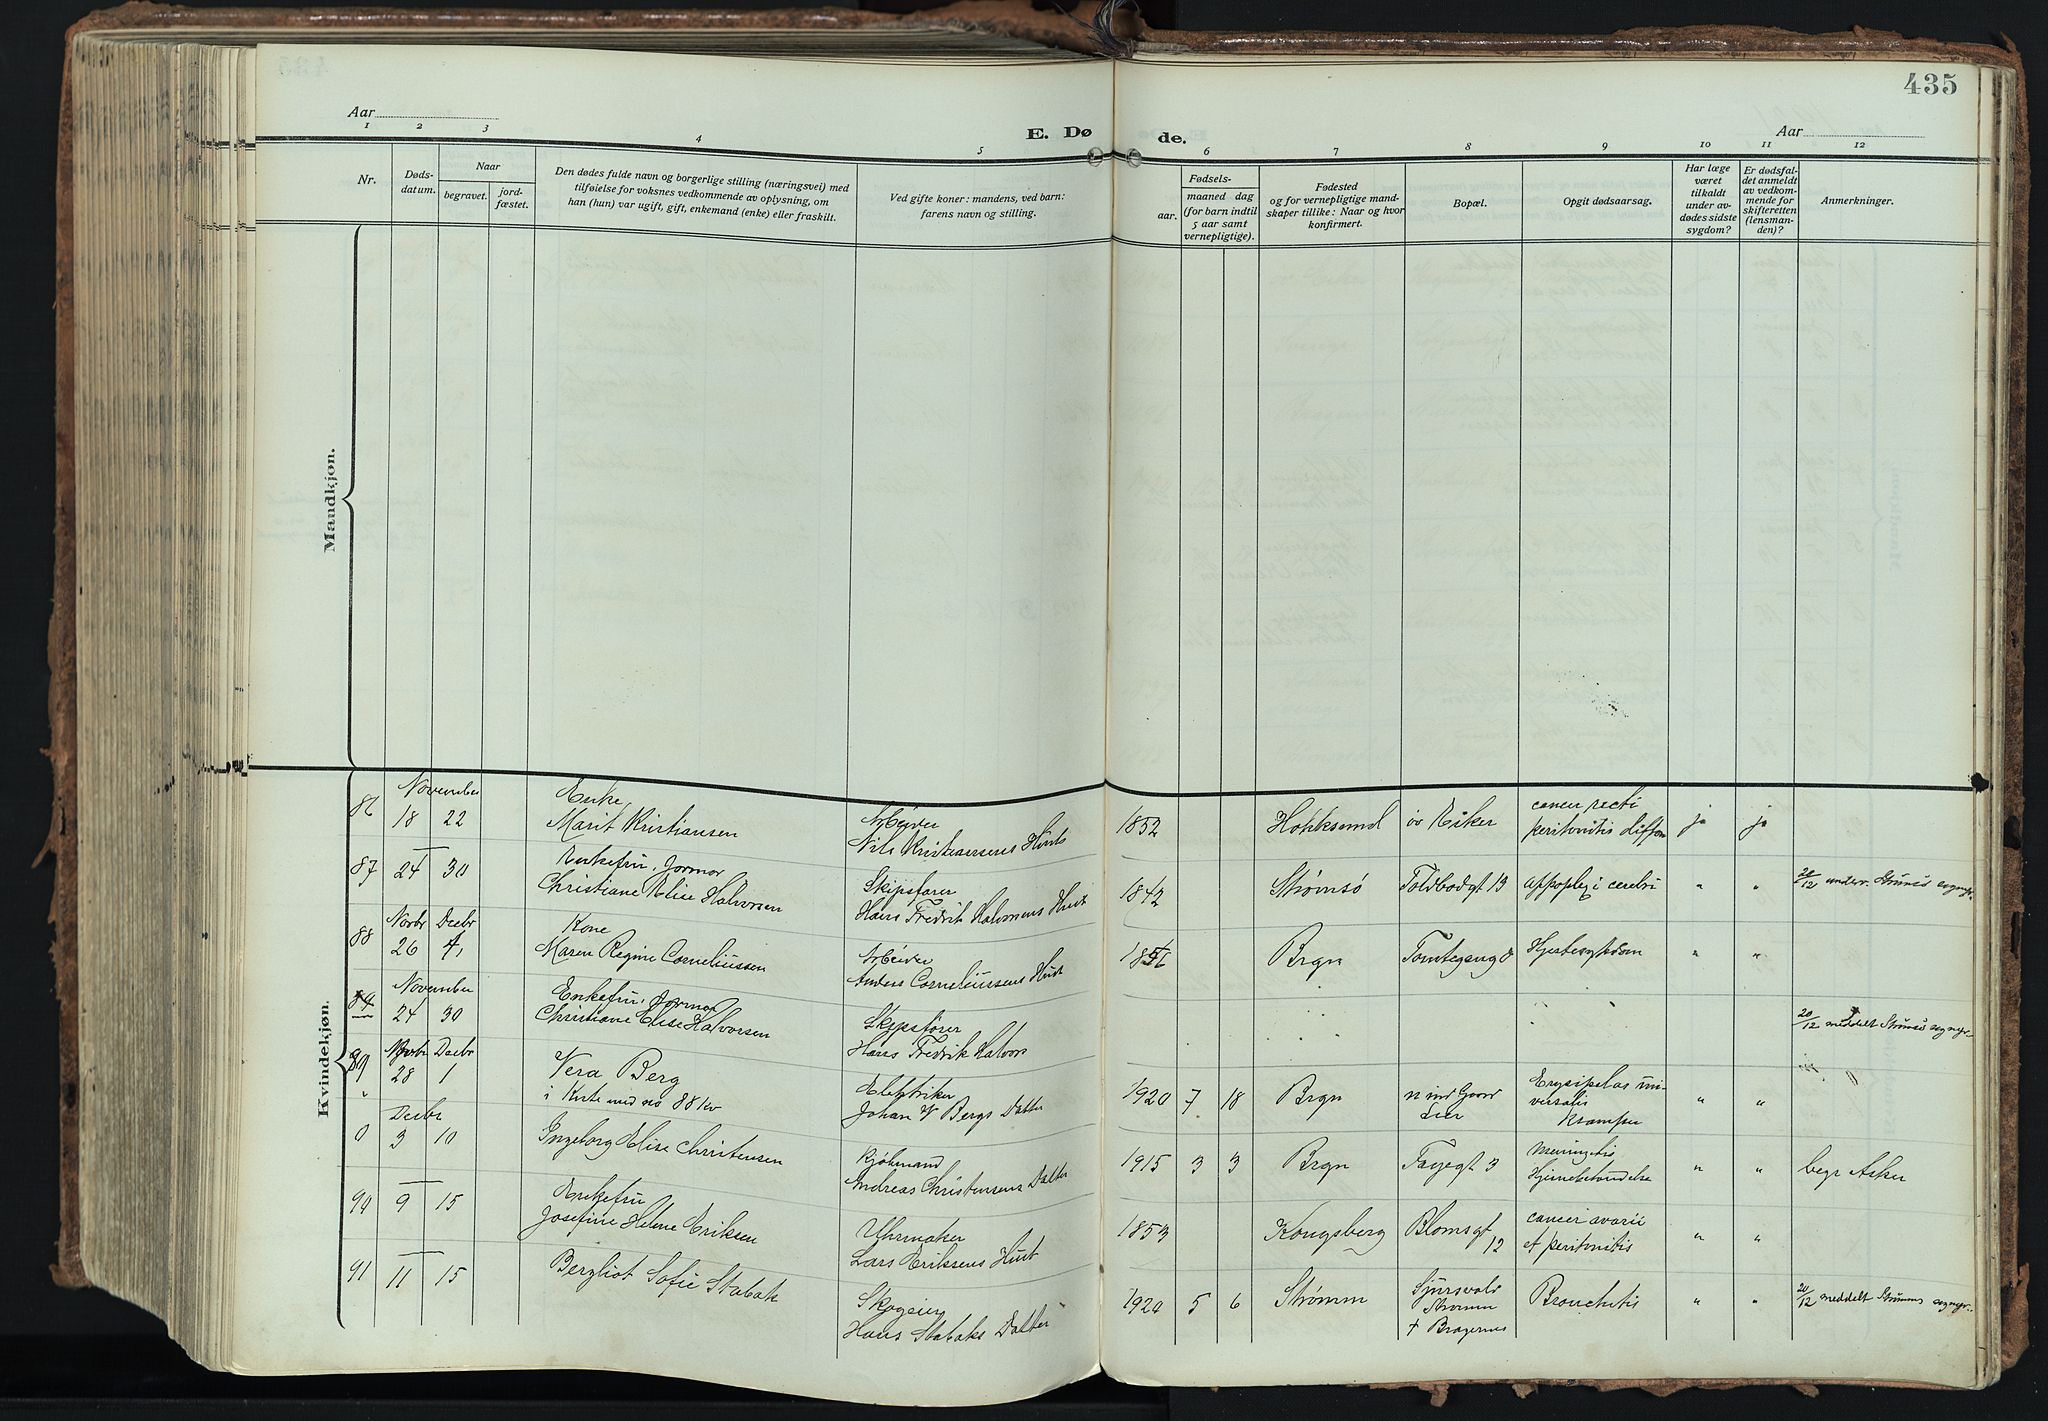 435
Aar
E. Dø
de.
Aar
1 2 3 4 5 6 7 8 9 10 11 12
Nr.
Døds-
datum.
Naar
begravet.
jord-
fæstet.
Den dødes fulde navn og borgerlige stilling (næringsvei) med
tilføielse for voksnes vedkommende av oplysning, om
han (hun) var ugift, gift, enkemand (enke) eller fraskilt.
Ved gifte koner: mandens, ved barn:
farens navn og stilling.
Fødsels-
aar.
maaned dag
(for barn indtil
5 aar samt
vernepligtige).
Fødested
og for vernepligtige mand-
skaper tillike: Naar og hvor
konfirmert.
Bopæl.
Opgit dødsaarsag.
Har læge
været
tilkaldt
under av-
dødes sidste
sygdom?
Er dødsfal-
det anmeldt
av vedkom-
mende for
skifteretten
(lensman-
den)?
Anmerkninger.
Mandkjøn.
Kvindekjøn.
86
November
18 22
Enke
Marit Kristiansen
Arbeider
Nils Kristiansens
1852
Hokksund
øv Eiker
cancer recti
peritonitis
ja ja
87
24 30
Enkefru, Jormor
Christiane Elise Halvorsen
Skipsfører
Hans Fredrik
1842
Strømsø
Toldbodgt 13
apoplexi cerebri
" "
20/12 underr. Strømsø sognepr.
88
Novbr Decbr
26 4
Kone
Maren Regine Corneliussen
Arbeider
Anders Corneliussens
Brgn
Hjertesygdom
" "
November
24 30
Enkefru, Jormor
Christiane Elise Halvorsen
Skipsfører
Hans Fredrik Halvors
20/12 meddelt Strømsø sognepr.
89
Novbr Decbr
28 1
Vera Berg
Elektriker
Johan Bergs Datter
1920 7 18
Brgn
Erysipelas uni-
versalis
Kramper
" "
0
Decbr
3 10
Ingeborg Elise Christensen
Kjøbmand
Andreas Christensens Datter
1915 3 3
Brgn
Meningitis
Hjernebetændelse
" "
begr Asker
90
9 15
Enkefru
Josefine Helene Eriksen
Uhrmaker
Lars Eriksens
1853
Kongsberg
Blomsgt
12
cancer ovarii
et peritonitis
" "
91
11 15
Bergliot Sofie Stabæk
Skogeier
Hans Stabæks Datter
1920 5 6
Strømm
Strømm
† Bragernes
Bronchitis
" "
20/12 meddelt Strømms sognepr.